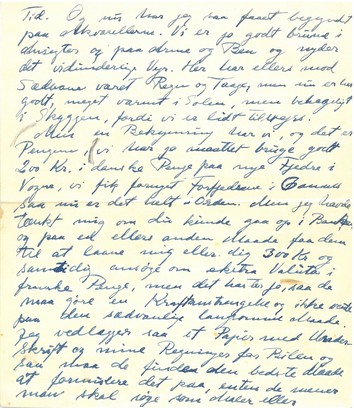 Tid. Og nu har jeg saa faaet begyndt
paa Akvarellerne. Vi er jo godt brune i
ansigter og paa arme og Ben og nyder
det vidunderlige Vejr. Her har ellers mod
Sædvane været Regn og Taage, men nu er her
godt, meget varmt i Solen, men behageligt
i Skyggen, fordi vi er lidt tilvejrs.
Men en Bekymring har vi, og det er
Pengene, vi har jo maattet bruge godt
200 Kr. i danske Penge paa nye Fjedre i
Vogne, vi fik fornyet Forfjedrene i
saa nu er det helt i Orden. Men jeg havde
tænkt mig om du kunde gaa op i Banken
og paa en eller anden Maade faa dem
til at laane mig eller dig 300 Kr og
samtidig ansøge om ekstra Valuta i
franske Penge, men det haster jo, saa de
maa gøre en Kraftanstrengelse og ikke vente
paa den sædvanlig langsomme Maade.
Jeg vedlægger saa et Papir med Under-
skrift og mine Regninger for Bilen og
saa maa du finde den bedste Maade
at formulere det paa, enten de mener
man skal søge som Maler eller